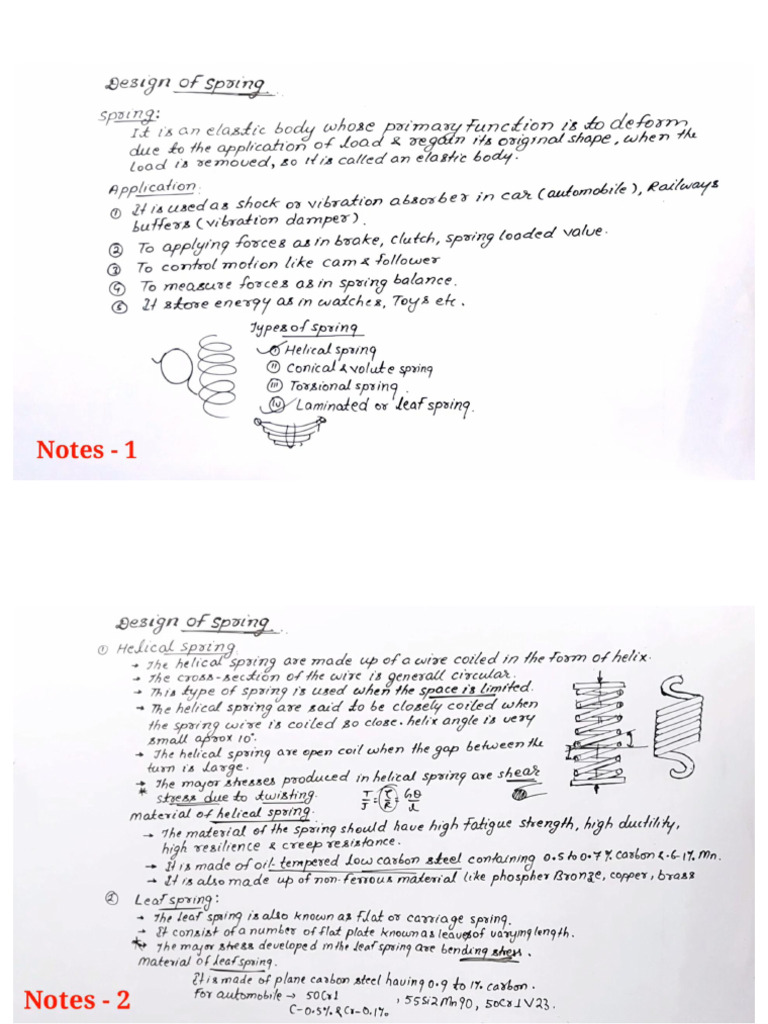 Design of Spring
Spring:
It is an elastic body whose primary function is to deform
due to the application of load & regain its original shape, when the
load is removed, so it is called an elastic body.
Application:
① It is used as shock or vibration absorber in car (automobile), Railways
buffers (vibration damper).
② To applying forces as in brake, clutch, spring loaded value.
③ To control motion like cam & follower
④ To measure forces as in spring balance.
⑤ It store energy as in watches, Toys etc.
Types of spring
① Helical spring
(ii) Conical & volute spring
(iii) Torsional spring
(iv) Laminated or leaf spring.
Notes - 1
Design of Spring
① Helical spring
→ The helical spring are made up of a wire coiled in the form of helix.
→ The cross-section of the wire is generall circular.
→ This type of spring is used when the space is limited.
→ The helical spring are said to be closely coiled when
the spring wire is coiled so close. helix angle is very
small aprox 10°.
→ The helical spring are open coil when the gap between the
turn is large.
→ The major stresses produced in helical spring are shear
* stress due to twisting. T/J = τ/R = Gθ/l
material of helical spring.
→ The material of the spring should have high fatigue strength, high ductility,
high resilience & creep resistance.
→ It is made of oil-tempered low carbon steel containing 0.5 to 0.7% carbon &.6-1% Mn.
→ It is also made up of non-ferrous material like phospher Bronze, copper, brass
② Leaf spring:
→ The leaf spring is also known as flat or carriage spring.
→ It consist of a number of flat plate known as leaves of varying length.
* → The major stress developed in the leaf spring are bending stress.
material of leaf spring.
It is made of plane carbon steel having 0.9 to 1% carbon.
For automobile → 50Cr1 , 55Si2Mn90, 50Cr1V23.
C-0.5% & Cr-0.1%
Notes - 2